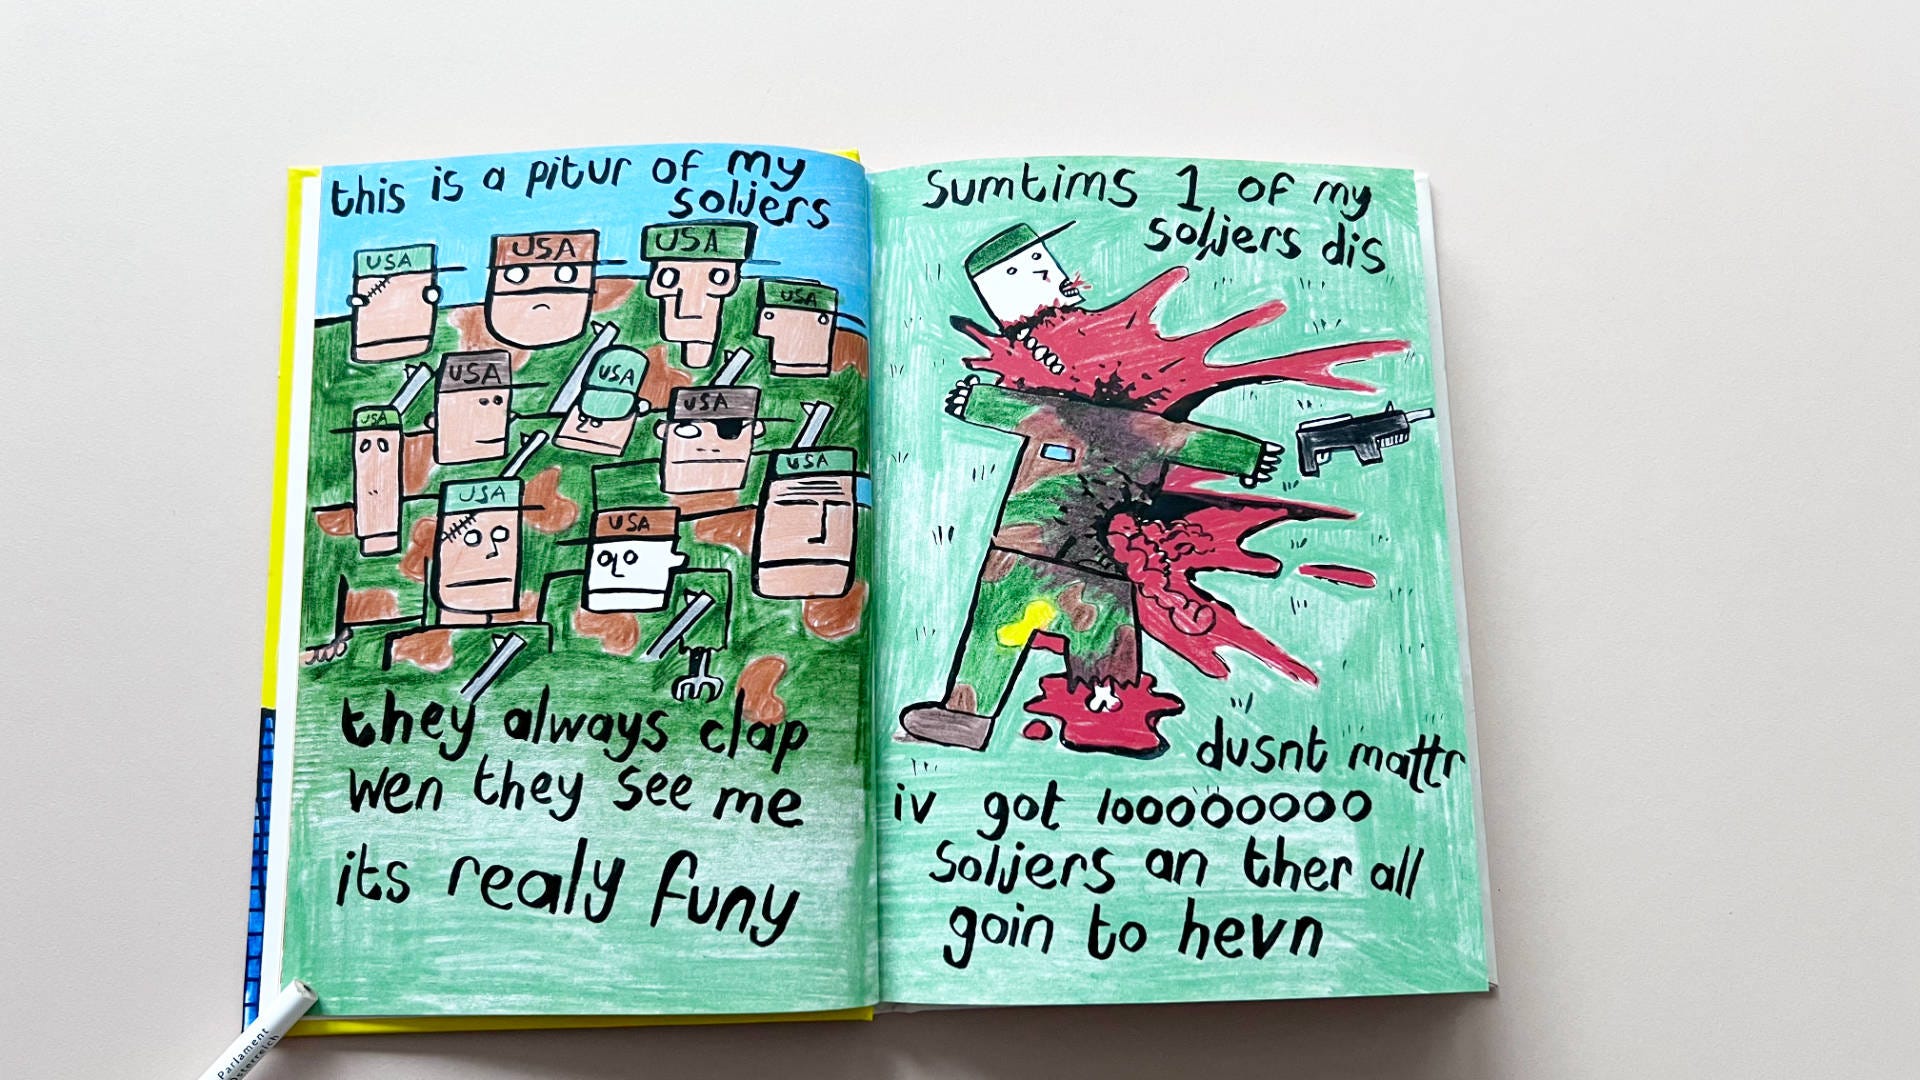 this is a pitur of my
soljers
USA
USA
USA
USA
USA
USA
USA
USA
USA
USA
USA
they always clap
wen they see me
its realy funy
sumtims 1 of my
soljers dis
dusnt mattr
iv got 100000000
soljers an ther all
goin to hevn
Parlament
Österreich